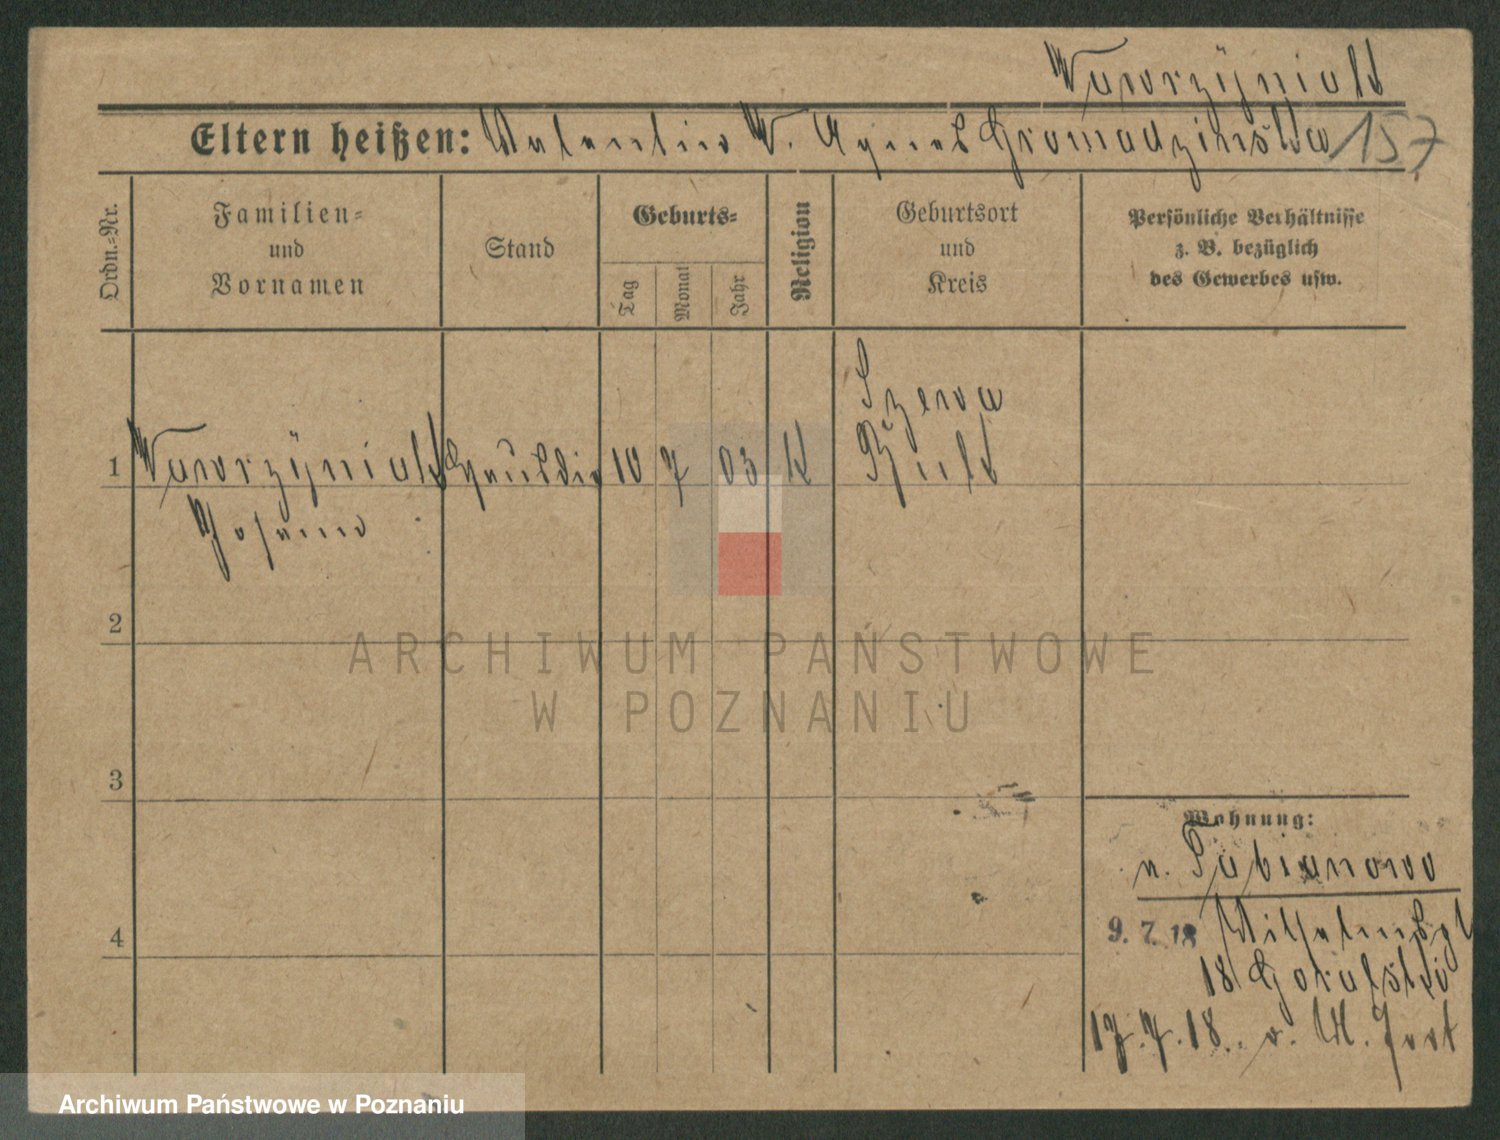 Wawrzyniak
Eltern heißen: Valentin W. Agnes Gromadzinska 157
Ordn.-Nr.
Familien-
und
Vornamen
Stand
Geburts-
Tag
Monat
Jahr
Religion
Geburtsort
und
Kreis
Persönliche Verhältnisse
z. B. bezüglich
des Gewerbes usw.
1 Wawrzyniak 10 7 03 K
Johann
2
ARCHIWUM PAŃSTWOWE
W POZNANIU
3
Wohnung:
n. Fabianowo
4
9. 7. 18
18
17. 7. 18. v. M. fort
Archiwum Państwowe w Poznaniu